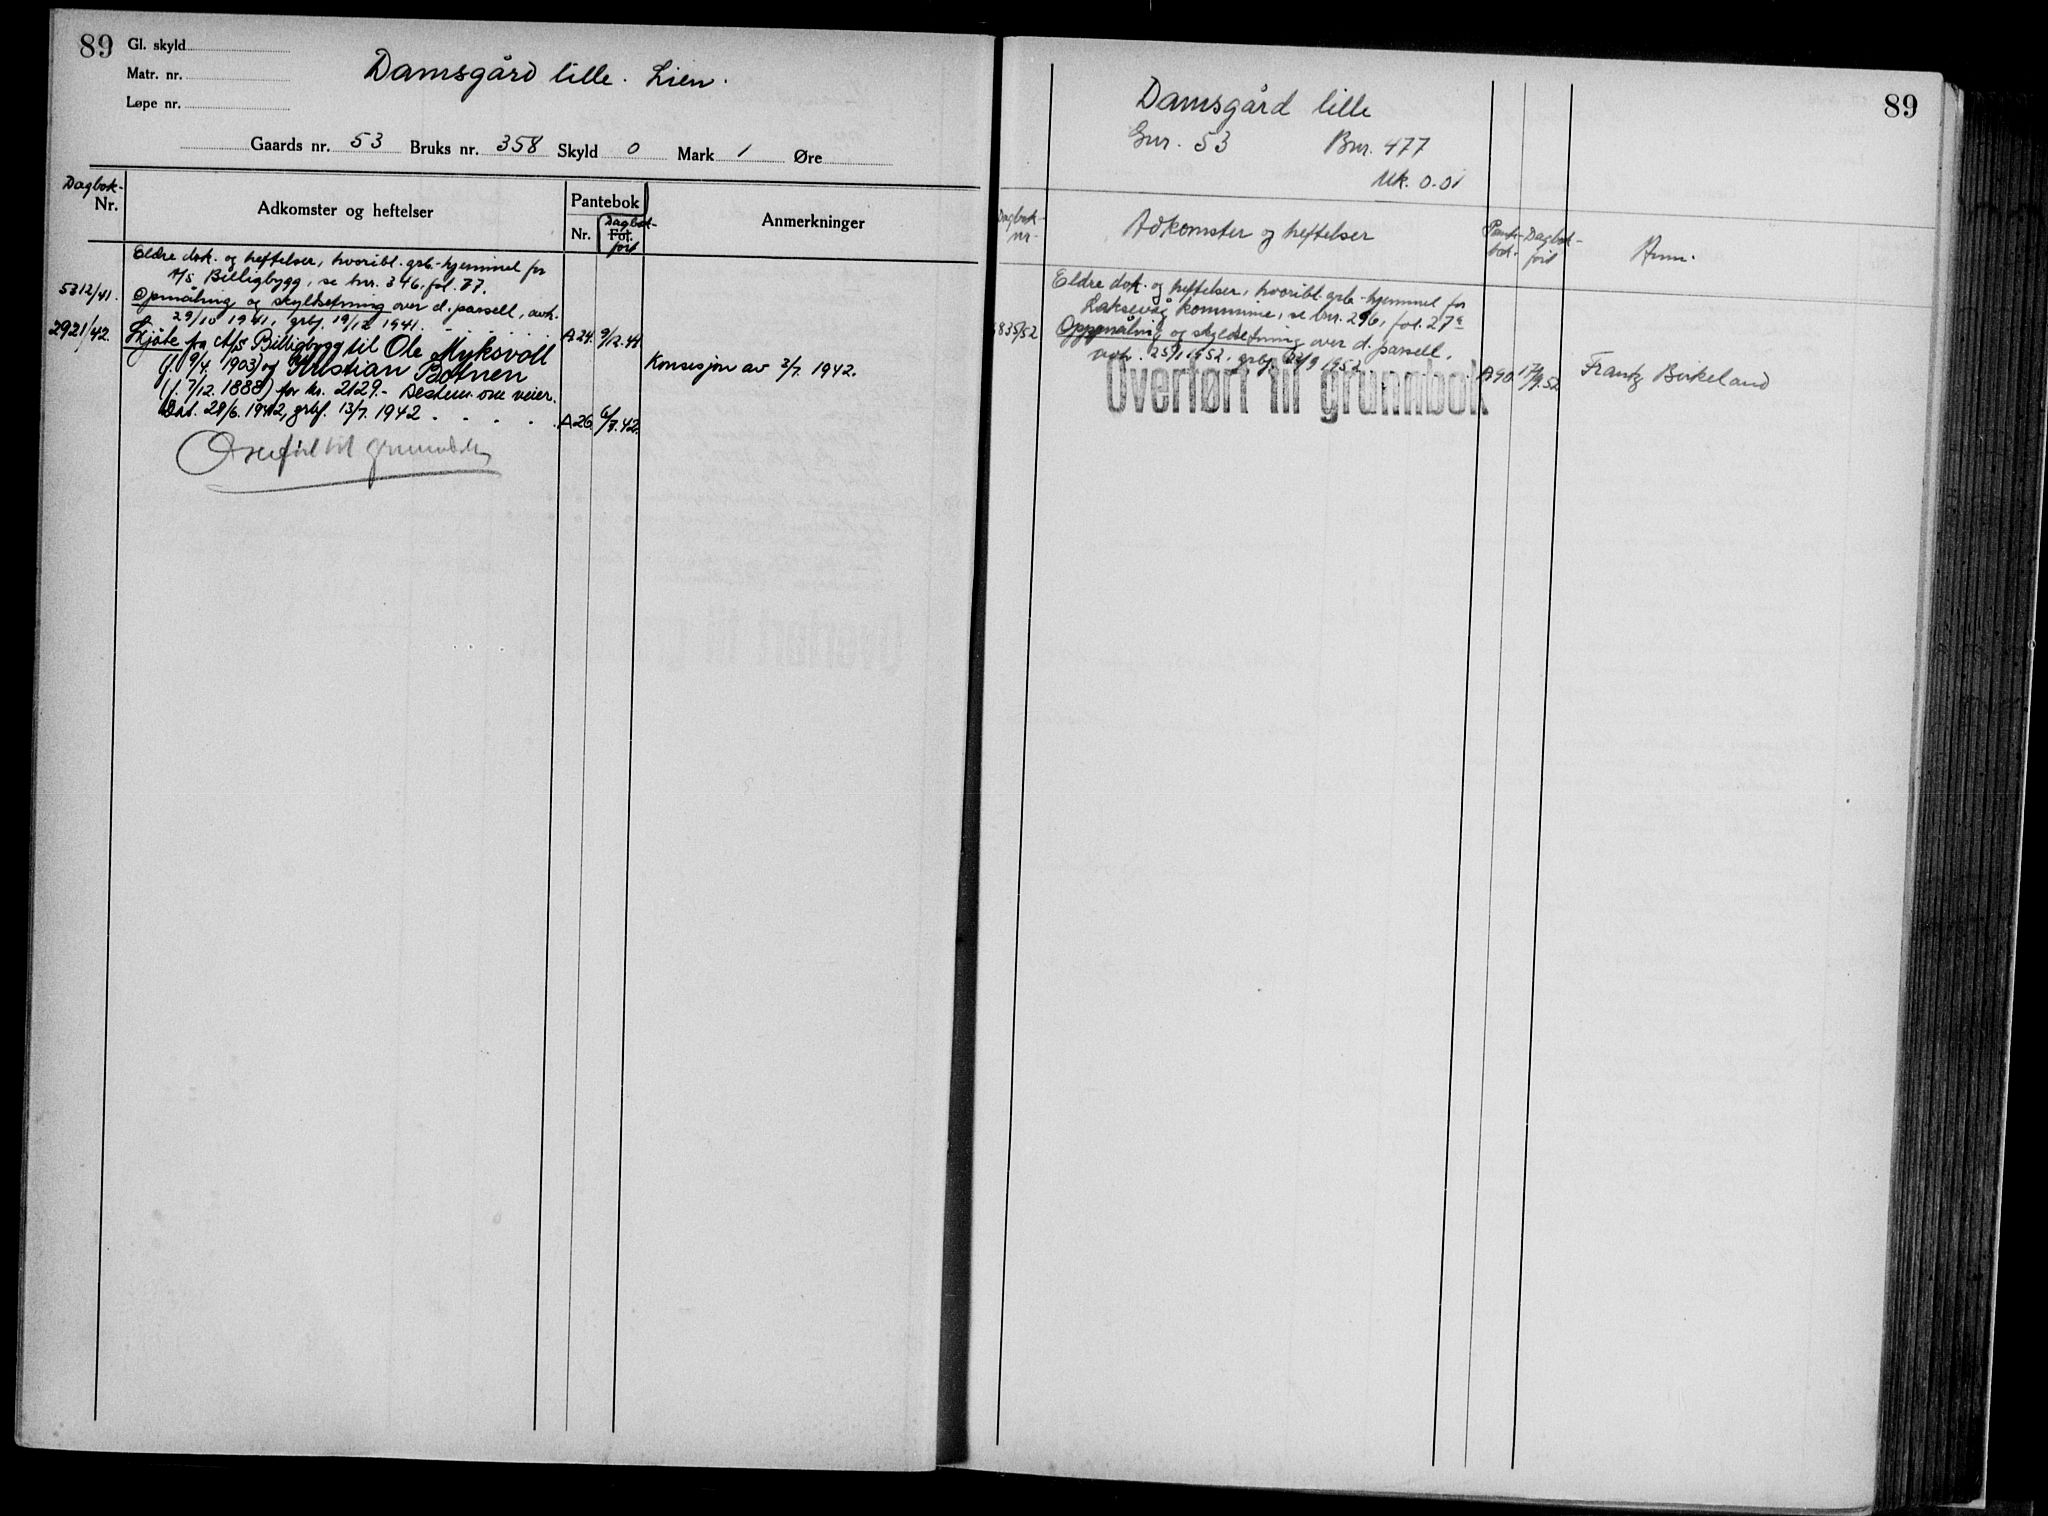 89
Gl. skyld
Matr. nr.
Løpe nr.
Damsgård lille. Lien.
Gaards nr. 53 Bruks nr. 358 Skyld 0 Mark 1 Øre
Dagbok-
Nr.
Adkomster og heftelser
Pantebok
Nr.
Dagbok-
Fol.
ført
Anmerkninger
Eldre dok. og heftelser, hvoribl. grb.-hjemmel for
A/S Billigbygg, se bnr. 346, fol. 77.
5312/41. Opmåling og skyldsetning over d. parsell, avh.
29/10 1941, grbf. 19/12 1941. A 24. 9/12.41
2921/42. Skjöte fra A/S Billigbygg til Ole Myksvoll
(f. 9/4. 1903) og Kristian Botnen
(f. 7/12. 1888) for kr. 2129.- Bestem. om veier.
Dat. 28/6. 1942, grbf. 13/7. 1942 . . . . . A 26. 6/7.42.
Konsesjon av 3/7. 1942.
Overført til grunnbok
89
Damsgård lille
Gnr. 53 Bnr. 477
Mk. 0.01
Dagbok-
nr.
Adkomster og heftelser
Pante-
bok.
Dagbok-
ført
Anm.
Eldre dok. og heftelser, hvoribl. grb.-hjemmel for
Laksevåg kommune, se bnr. 296, fol. 27a
835/52 Oppmåling og skyldsetning over d. parsell,
avh. 25/1 1952, grbf. /9 1952 A 90 17/9.52 Frantz Birkeland
Overført til grunnbok